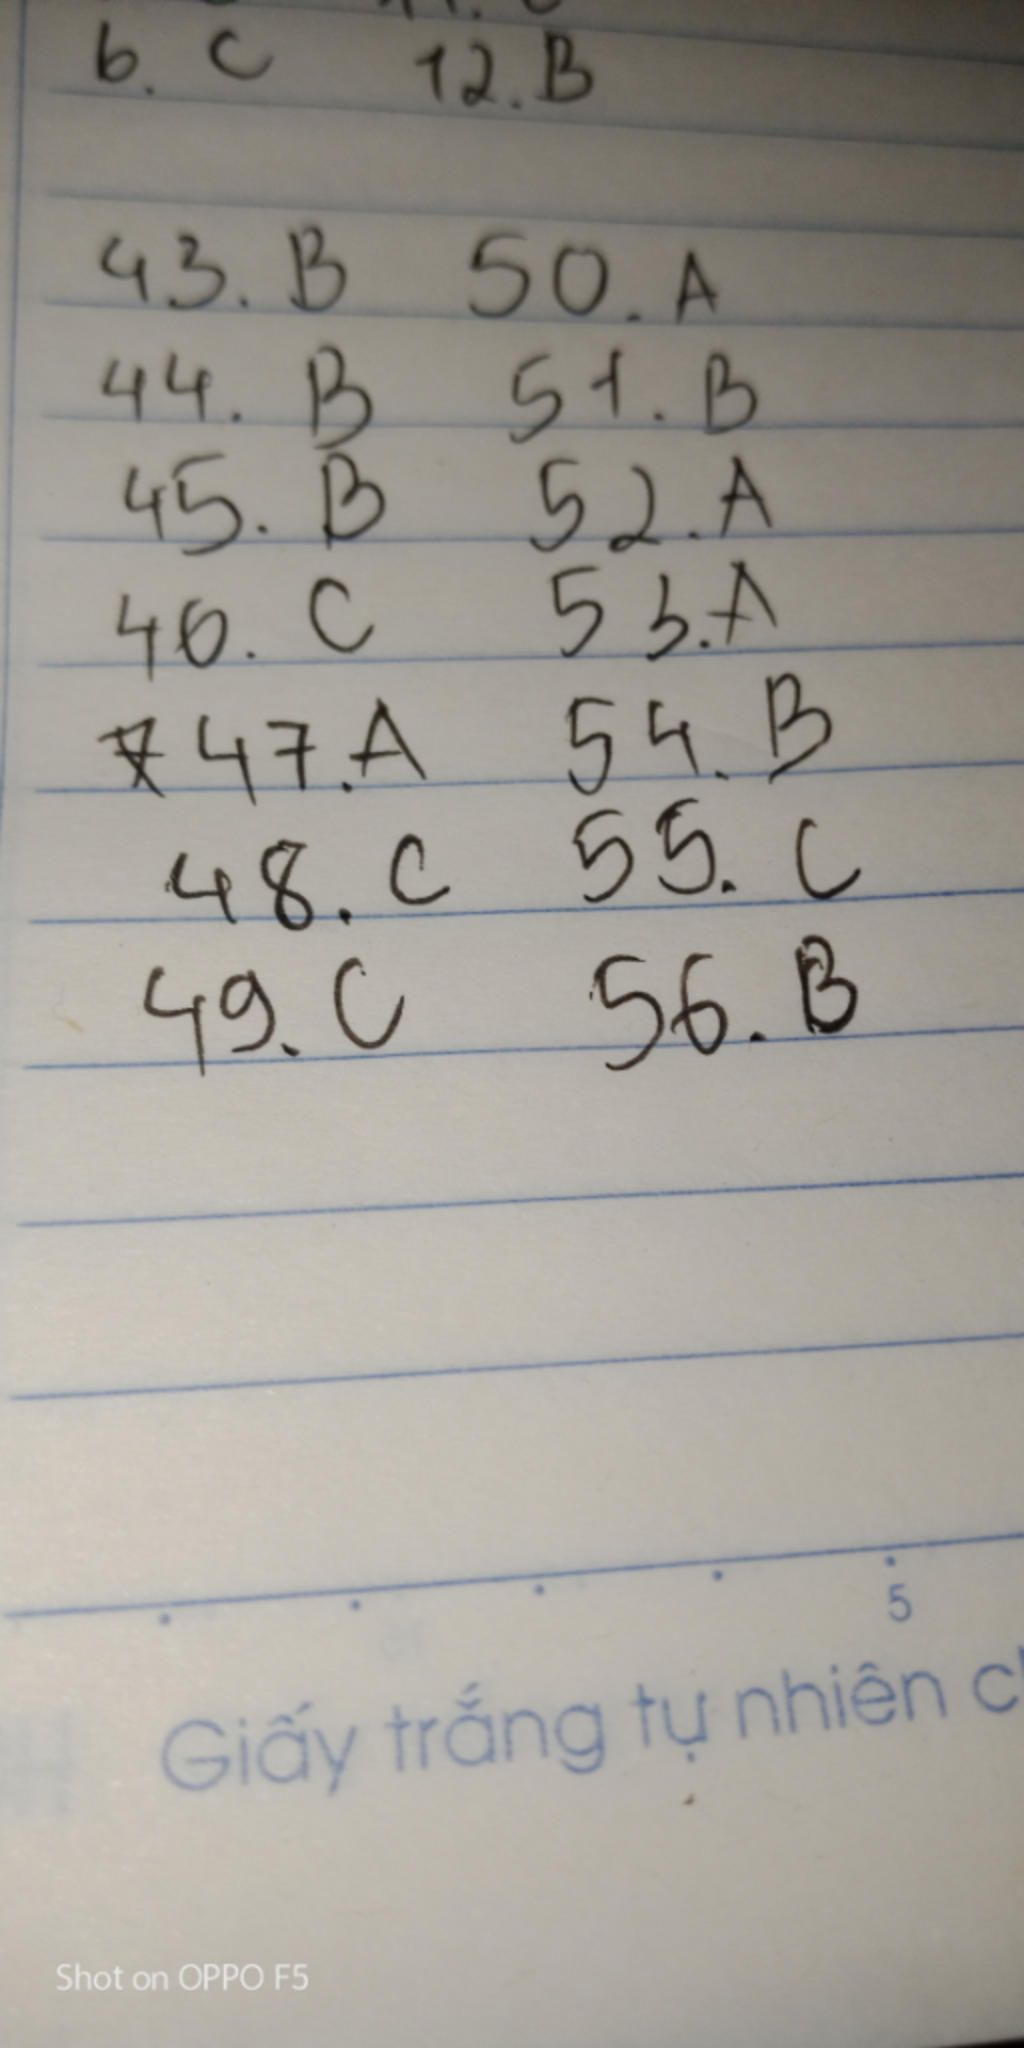 6. C 12. B
43. B 50. A
44. B 51. B
45. B 52. A
46. C 53. A
47. A 54. B
48. C 55. C
49. C 56. B
5
Giấy trắng tự nhiên
Shot on OPPO F5